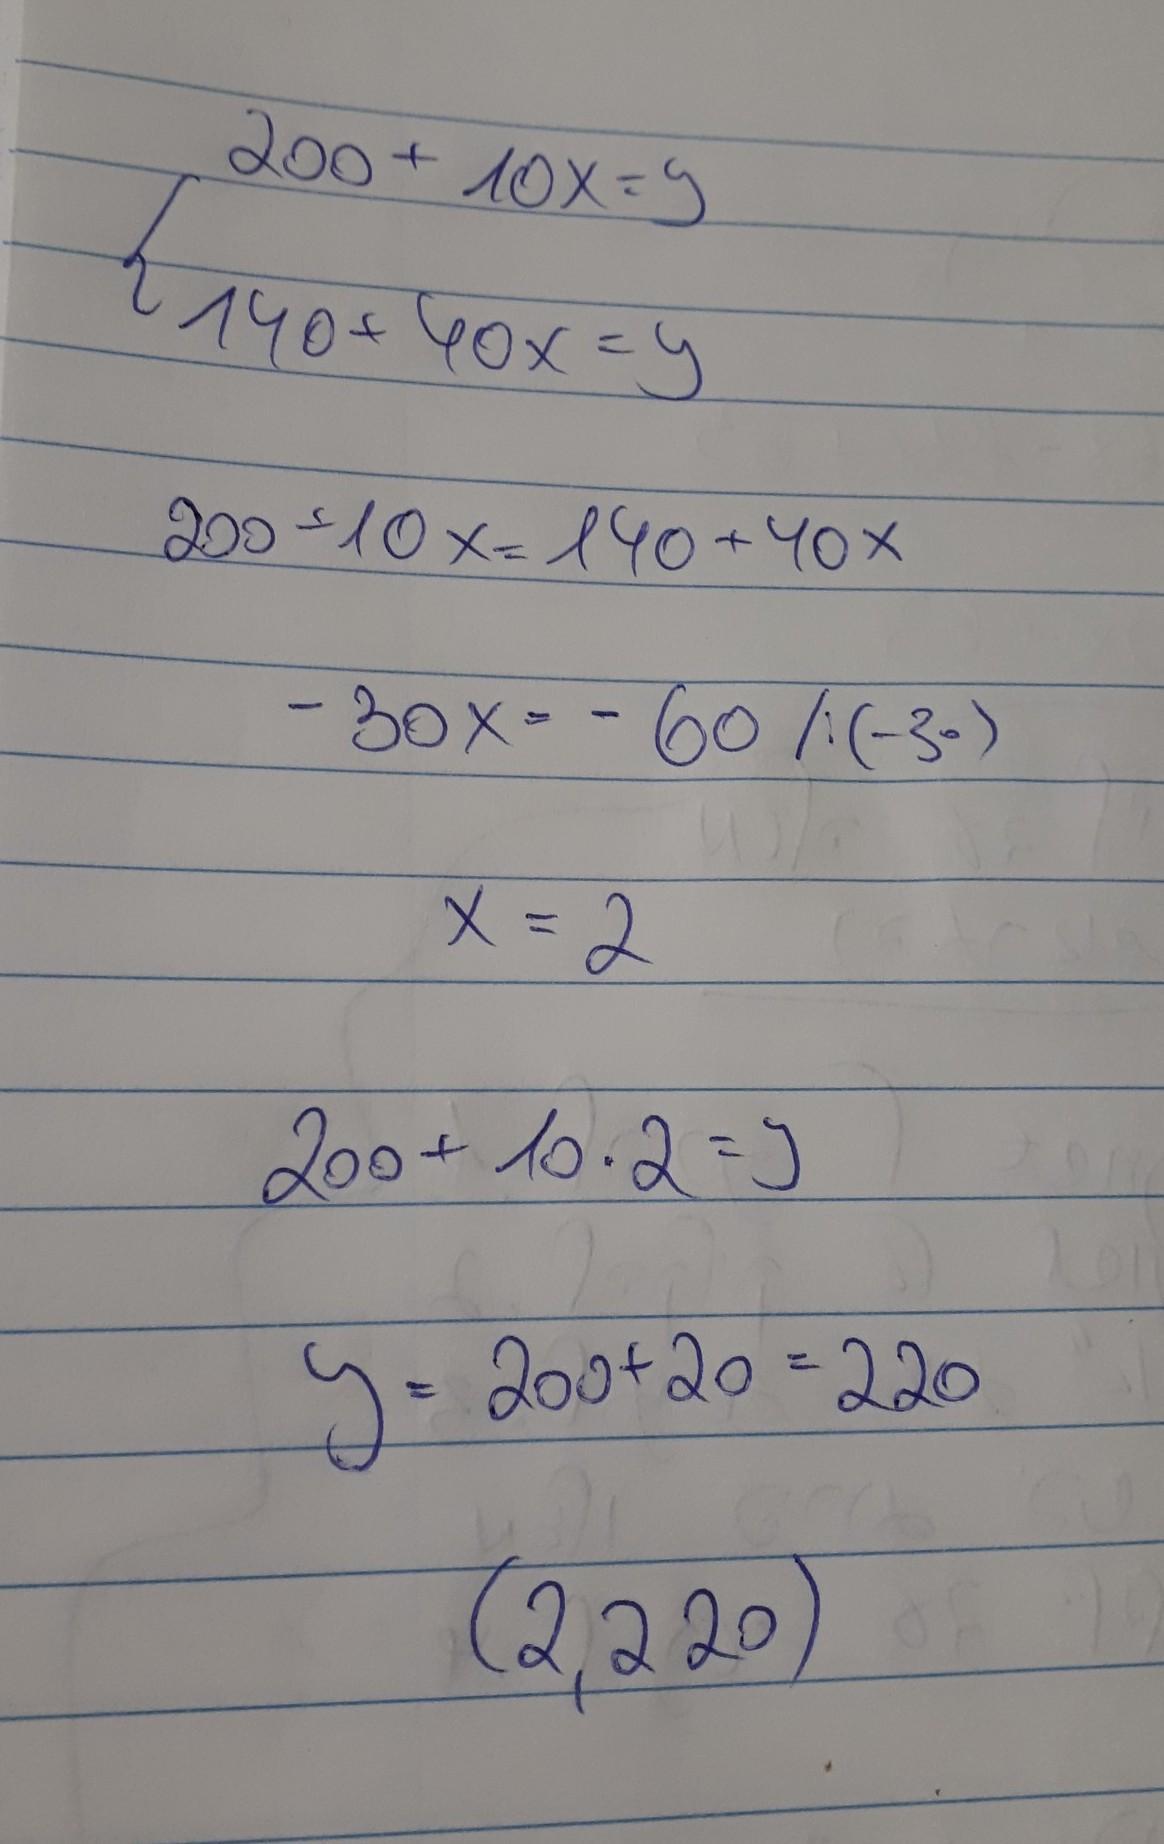 200 + 10x = y
140 + 40x = y
200 + 10x = 140 + 40x
- 30x = - 60 /:(-30)
x = 2
200 + 10 · 2 = y
y = 200 + 20 = 220
(2, 220)